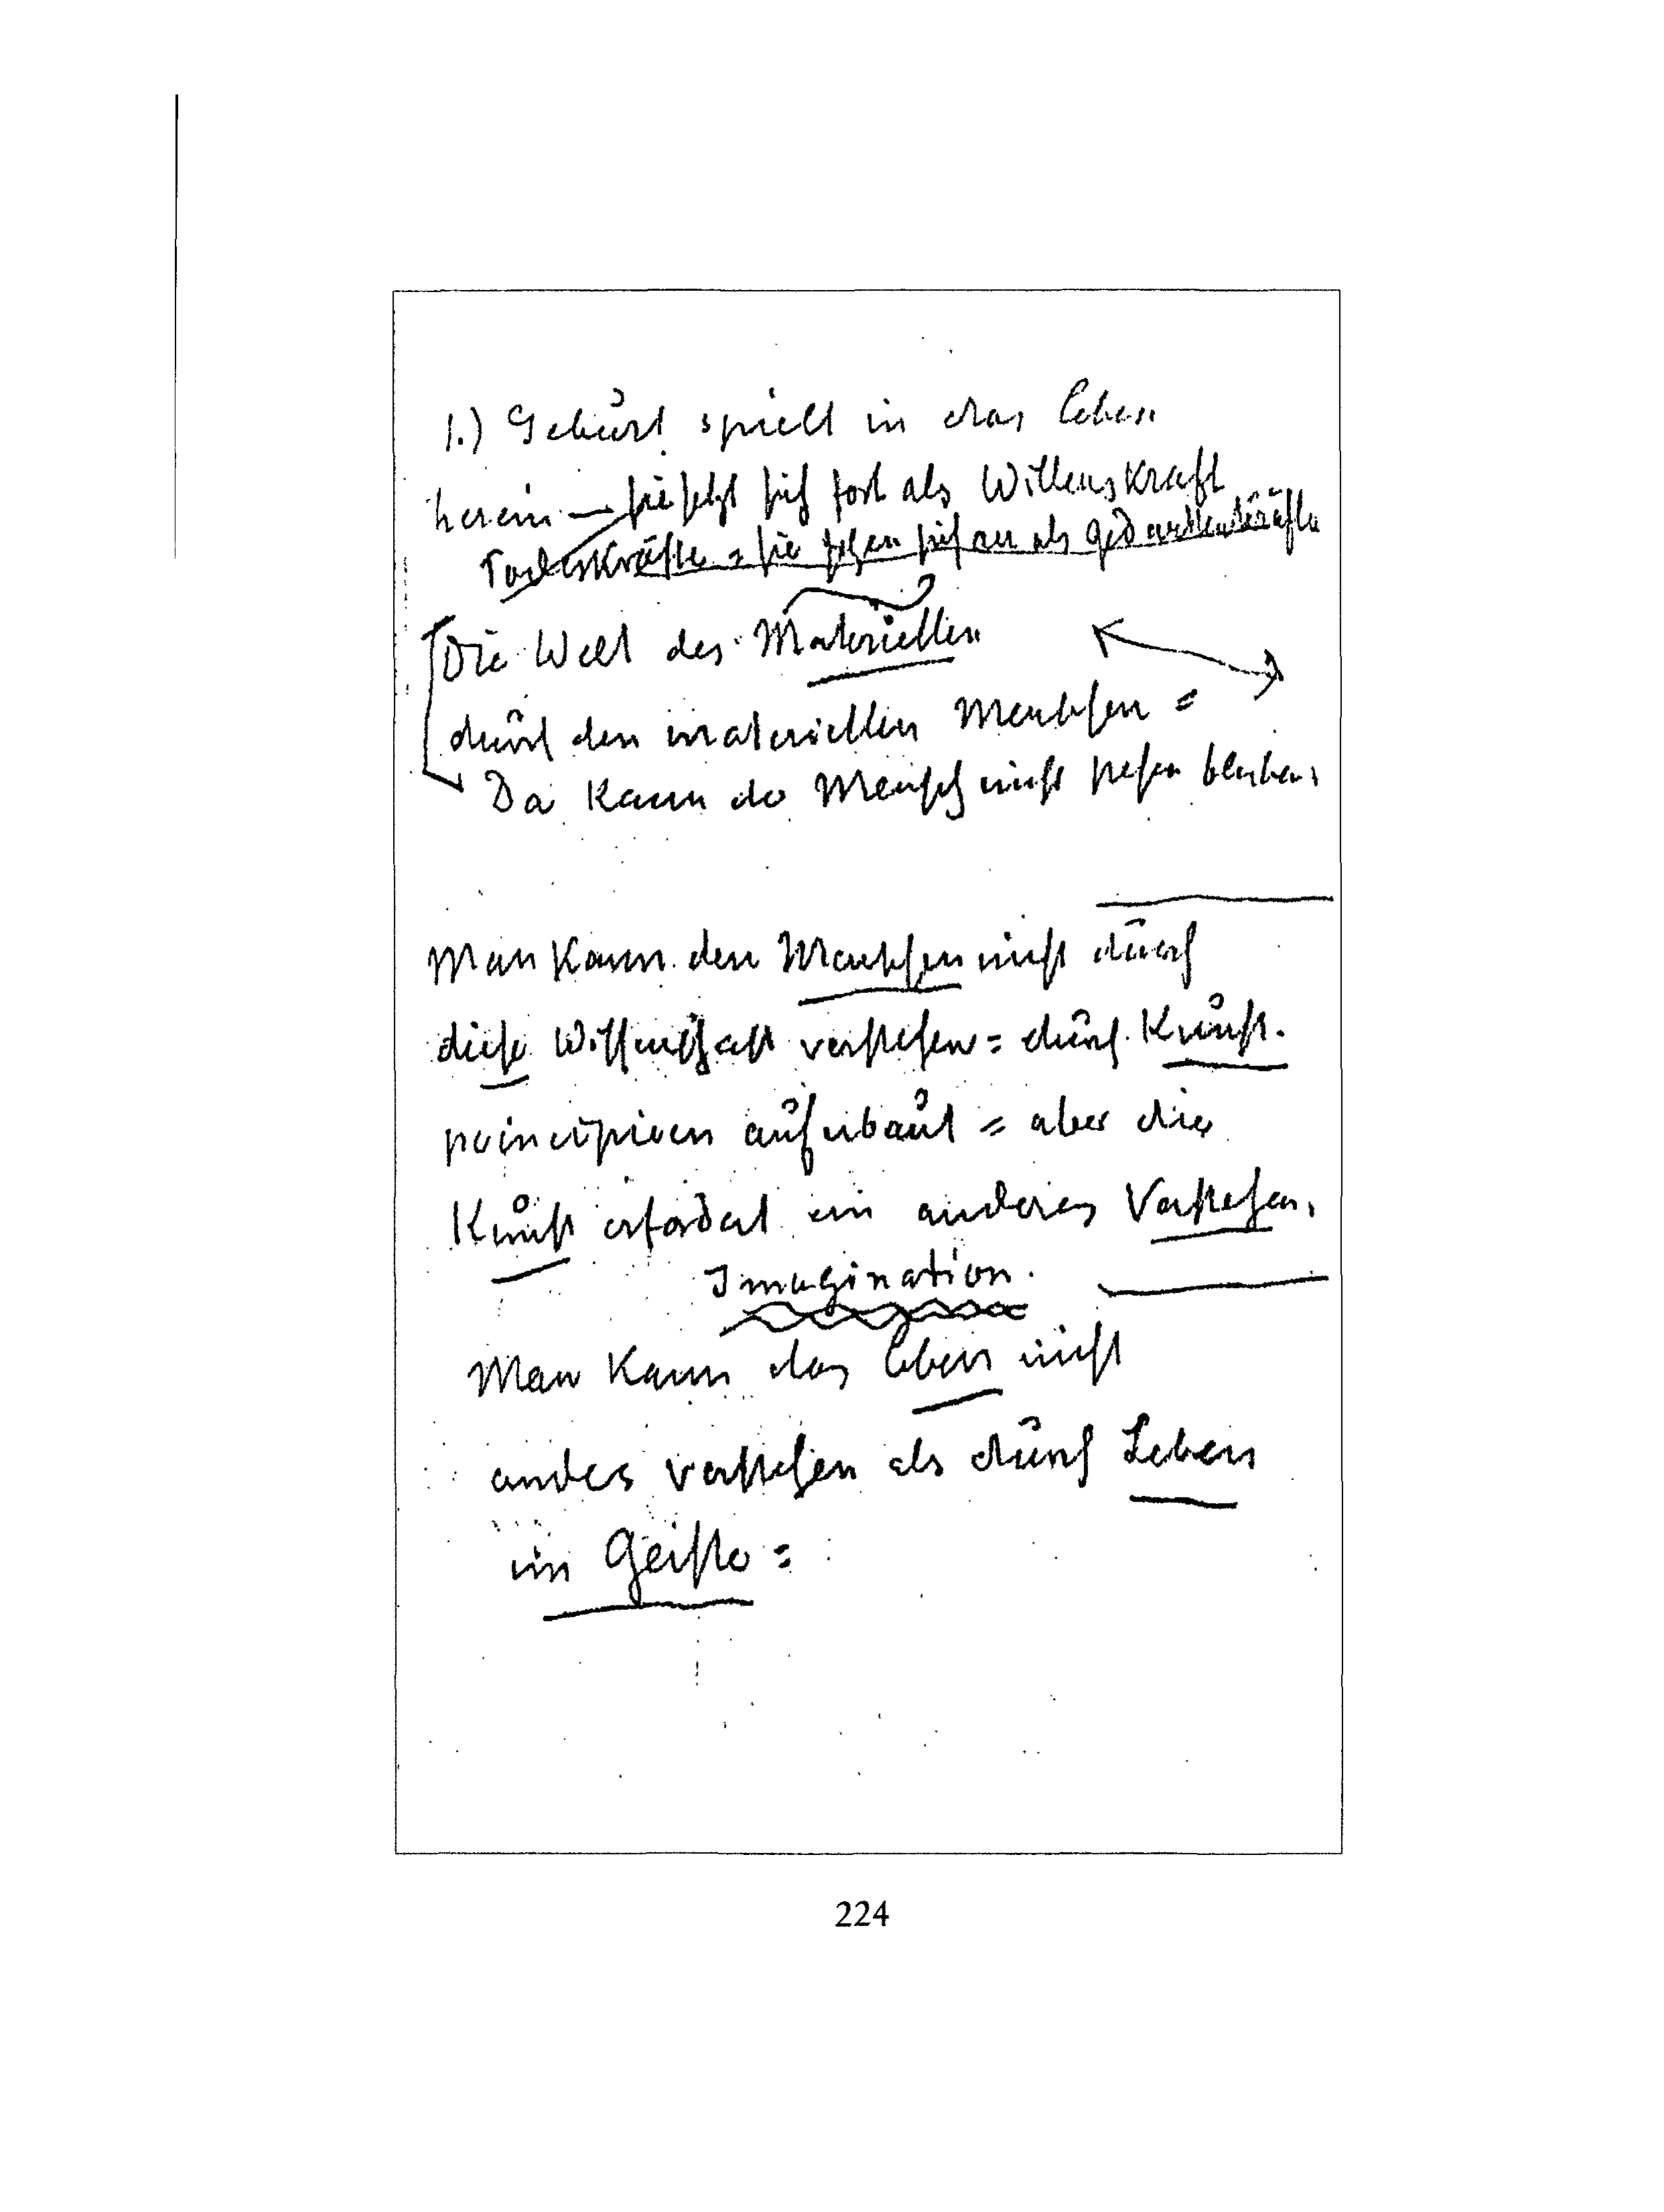 1.) Geburt spielt in das Leben
herein — sie setzt sich fort als Willenskraft
Todeskräfte = sie setzen sich an als Gedankenkräfte
Die Welt des Materiellen
durch den materiellen Menschen =
Da kann der Mensch nicht stehen bleiben,
Man kann den Menschen nicht durch
diese Wissenschaft verstehen = durch Kunst-
principien aufgebaut = aber die
Kunst erfordert ein anderes Verstehen,
Imagination.
Man kann das Leben nicht
anders verstehen als durch Leben
im Geiste =
224